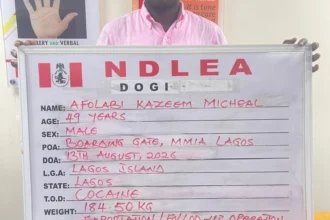 BERY AND VERBAL
NDLEA
DOGI
NAME: AFOLABI KAZEEM MICHEAL
AGE: 49 YEARS
SEX: MALE
POA: BOARDING GATE, MMIA LAGOS
DOA: 13TH AUGUST, 2026
L.G.A: LAGOS ISLAND
STATE: LAGOS
T.O.D: COCAINE
WEIGHT: 184.50KG